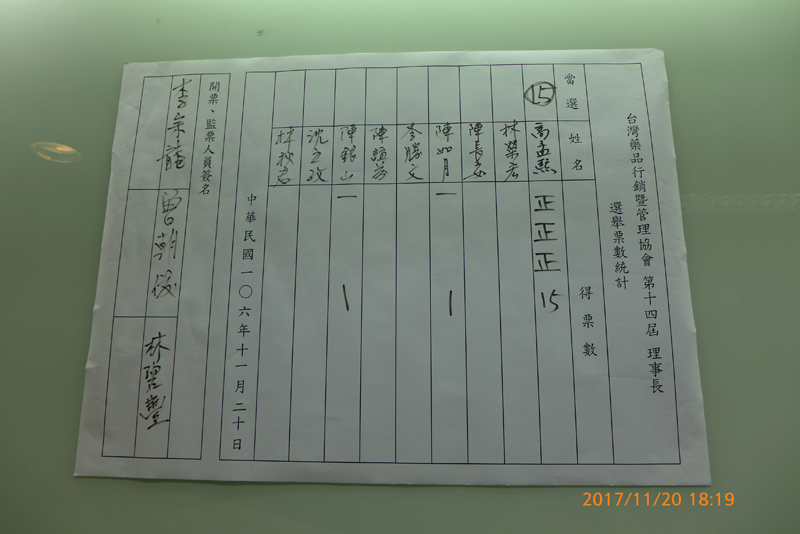 台灣藥品行銷暨管理協會 第十四屆 理事長
選舉票數統計
當選 姓名 得票數
⑮ 高孟熙 正正正 15
林榮宏
陳長安
陳如月 一 1
李勝文
陳誼芬
陳銀山 一 1
沈立政
林秋君
中華民國一〇六年十一月二十日
開票、監票人員簽名
李宗龍
曾朝俊
林碧豐
2017/11/20 18:19